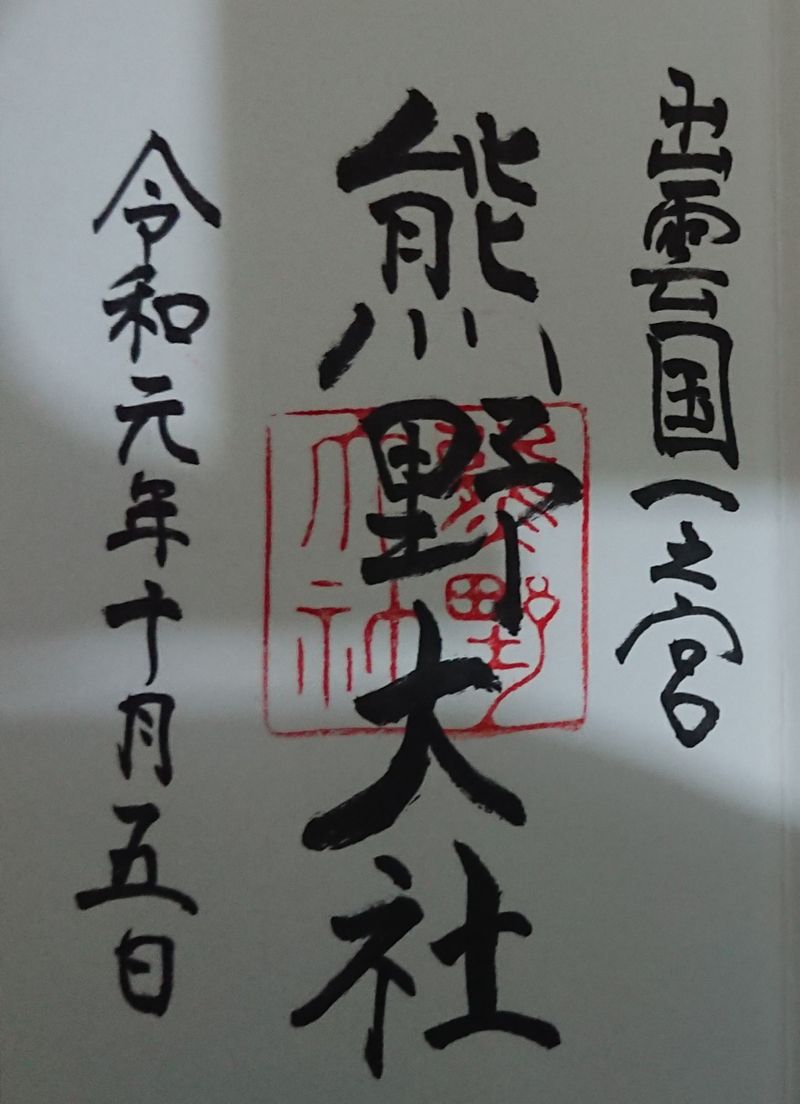 出雲国一之宮
熊野大社
熊野大社
令和元年十月五日